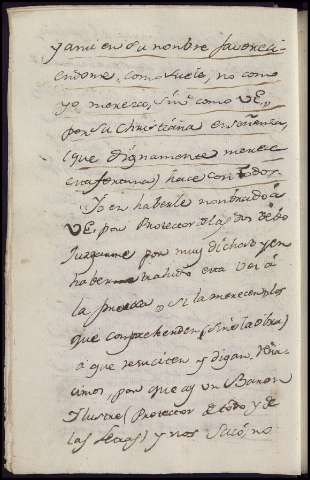 y a mi en su nombre favoreci-
endome, como suele, no como
yo merezca, Sinº como VE,,
por su Christiana enseñanza,
(que dignamente merece
esta fortuna) hace con todos.
Yo en haberle nombrado á
VE, por Protector debo
Juzgarme por muy dichoso y en
haber trahido esta vez á
la prensa, si la merecen los
que comprehenden (Sino la obra)
á que resuciten y digan,
por que ay un Baron
Ilustre (Protector de todo y de
las ) y nos sacó, no